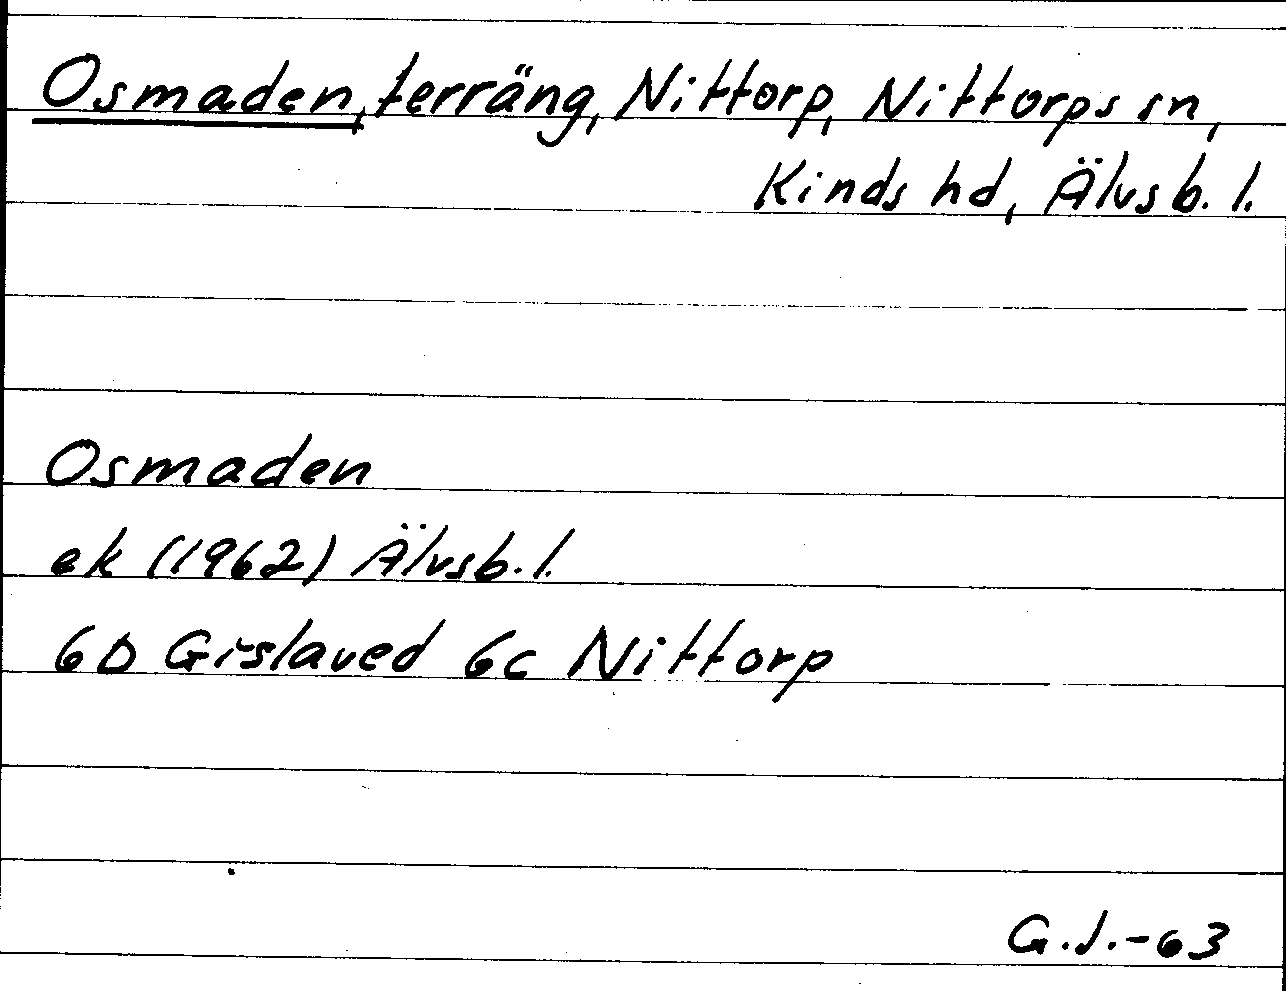 Osmaden, terräng, Nittorp, Nittorps sn,
Kinds hd, Älvsb. l.
Osmaden
ek (1962) Älvsb. l.
6D Gislaved 6c Nittorp
G.J.-63